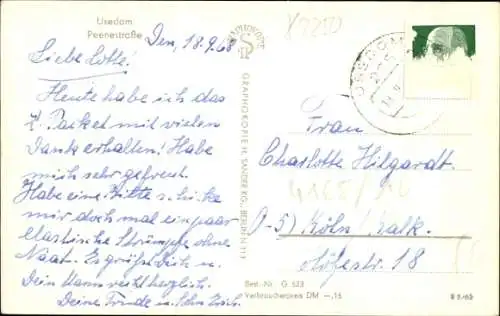 Usedom
Peenestraße
Den, 18.9.68
Liebe Lotte!
Heute habe ich das
2. Packet mit vielen
Dank erhalten! Habe
mich sehr gefreut.
Habe eine Bitte schicke
mir doch mal ein paar
elastische Strümpfe ohne
Naat. Es grüßt Dich u.
Dein Mann recht herzlich
Deine Frieda u. Sohn Erich.
GRAPHOKOPIE H. SANDER KG., BERLIN
Frau
Charlotte Hilgardt
Köln/Kalk
18
Best.-Nr. G 523
Verbraucherpreis DM -,15